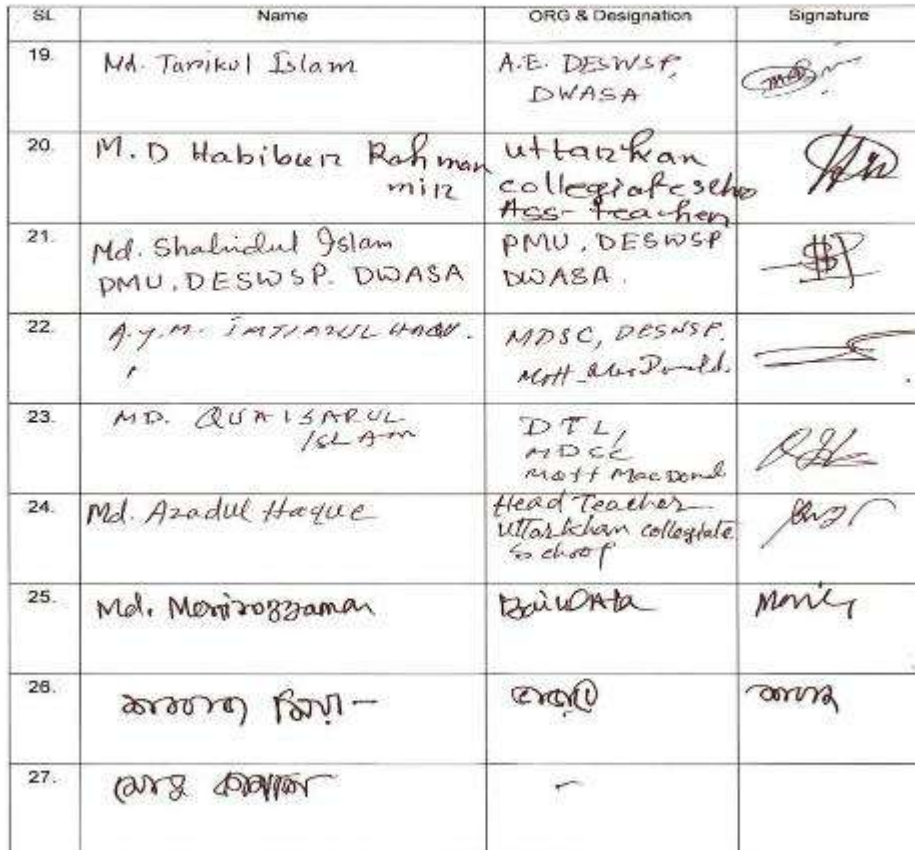 SL. Name ORG & Designation Signature
19. Md. Tarikul Islam A.E. DESWSP,
DWASA
20. M.D Habibur Rahman uttarkhan
mir collegiate scho
Ass- teacher
21. Md. Shahidul Islam PMU, DESWSP
PMU, DESWSP. DWASA DWASA.
22. A.Y.M. IMTIAZUL HAQU. MDSC, DESWSP.
Mott MacDonald.
23. MD. QUAISARUL DTL,
ISLAM MDSC
Mott MacDonald
24. Md. Azadul Haque Head Teacher
Uttarkhan collegiate
School
25. Md. Monirozzaman
26. মিয়া -
27. মোঃ -